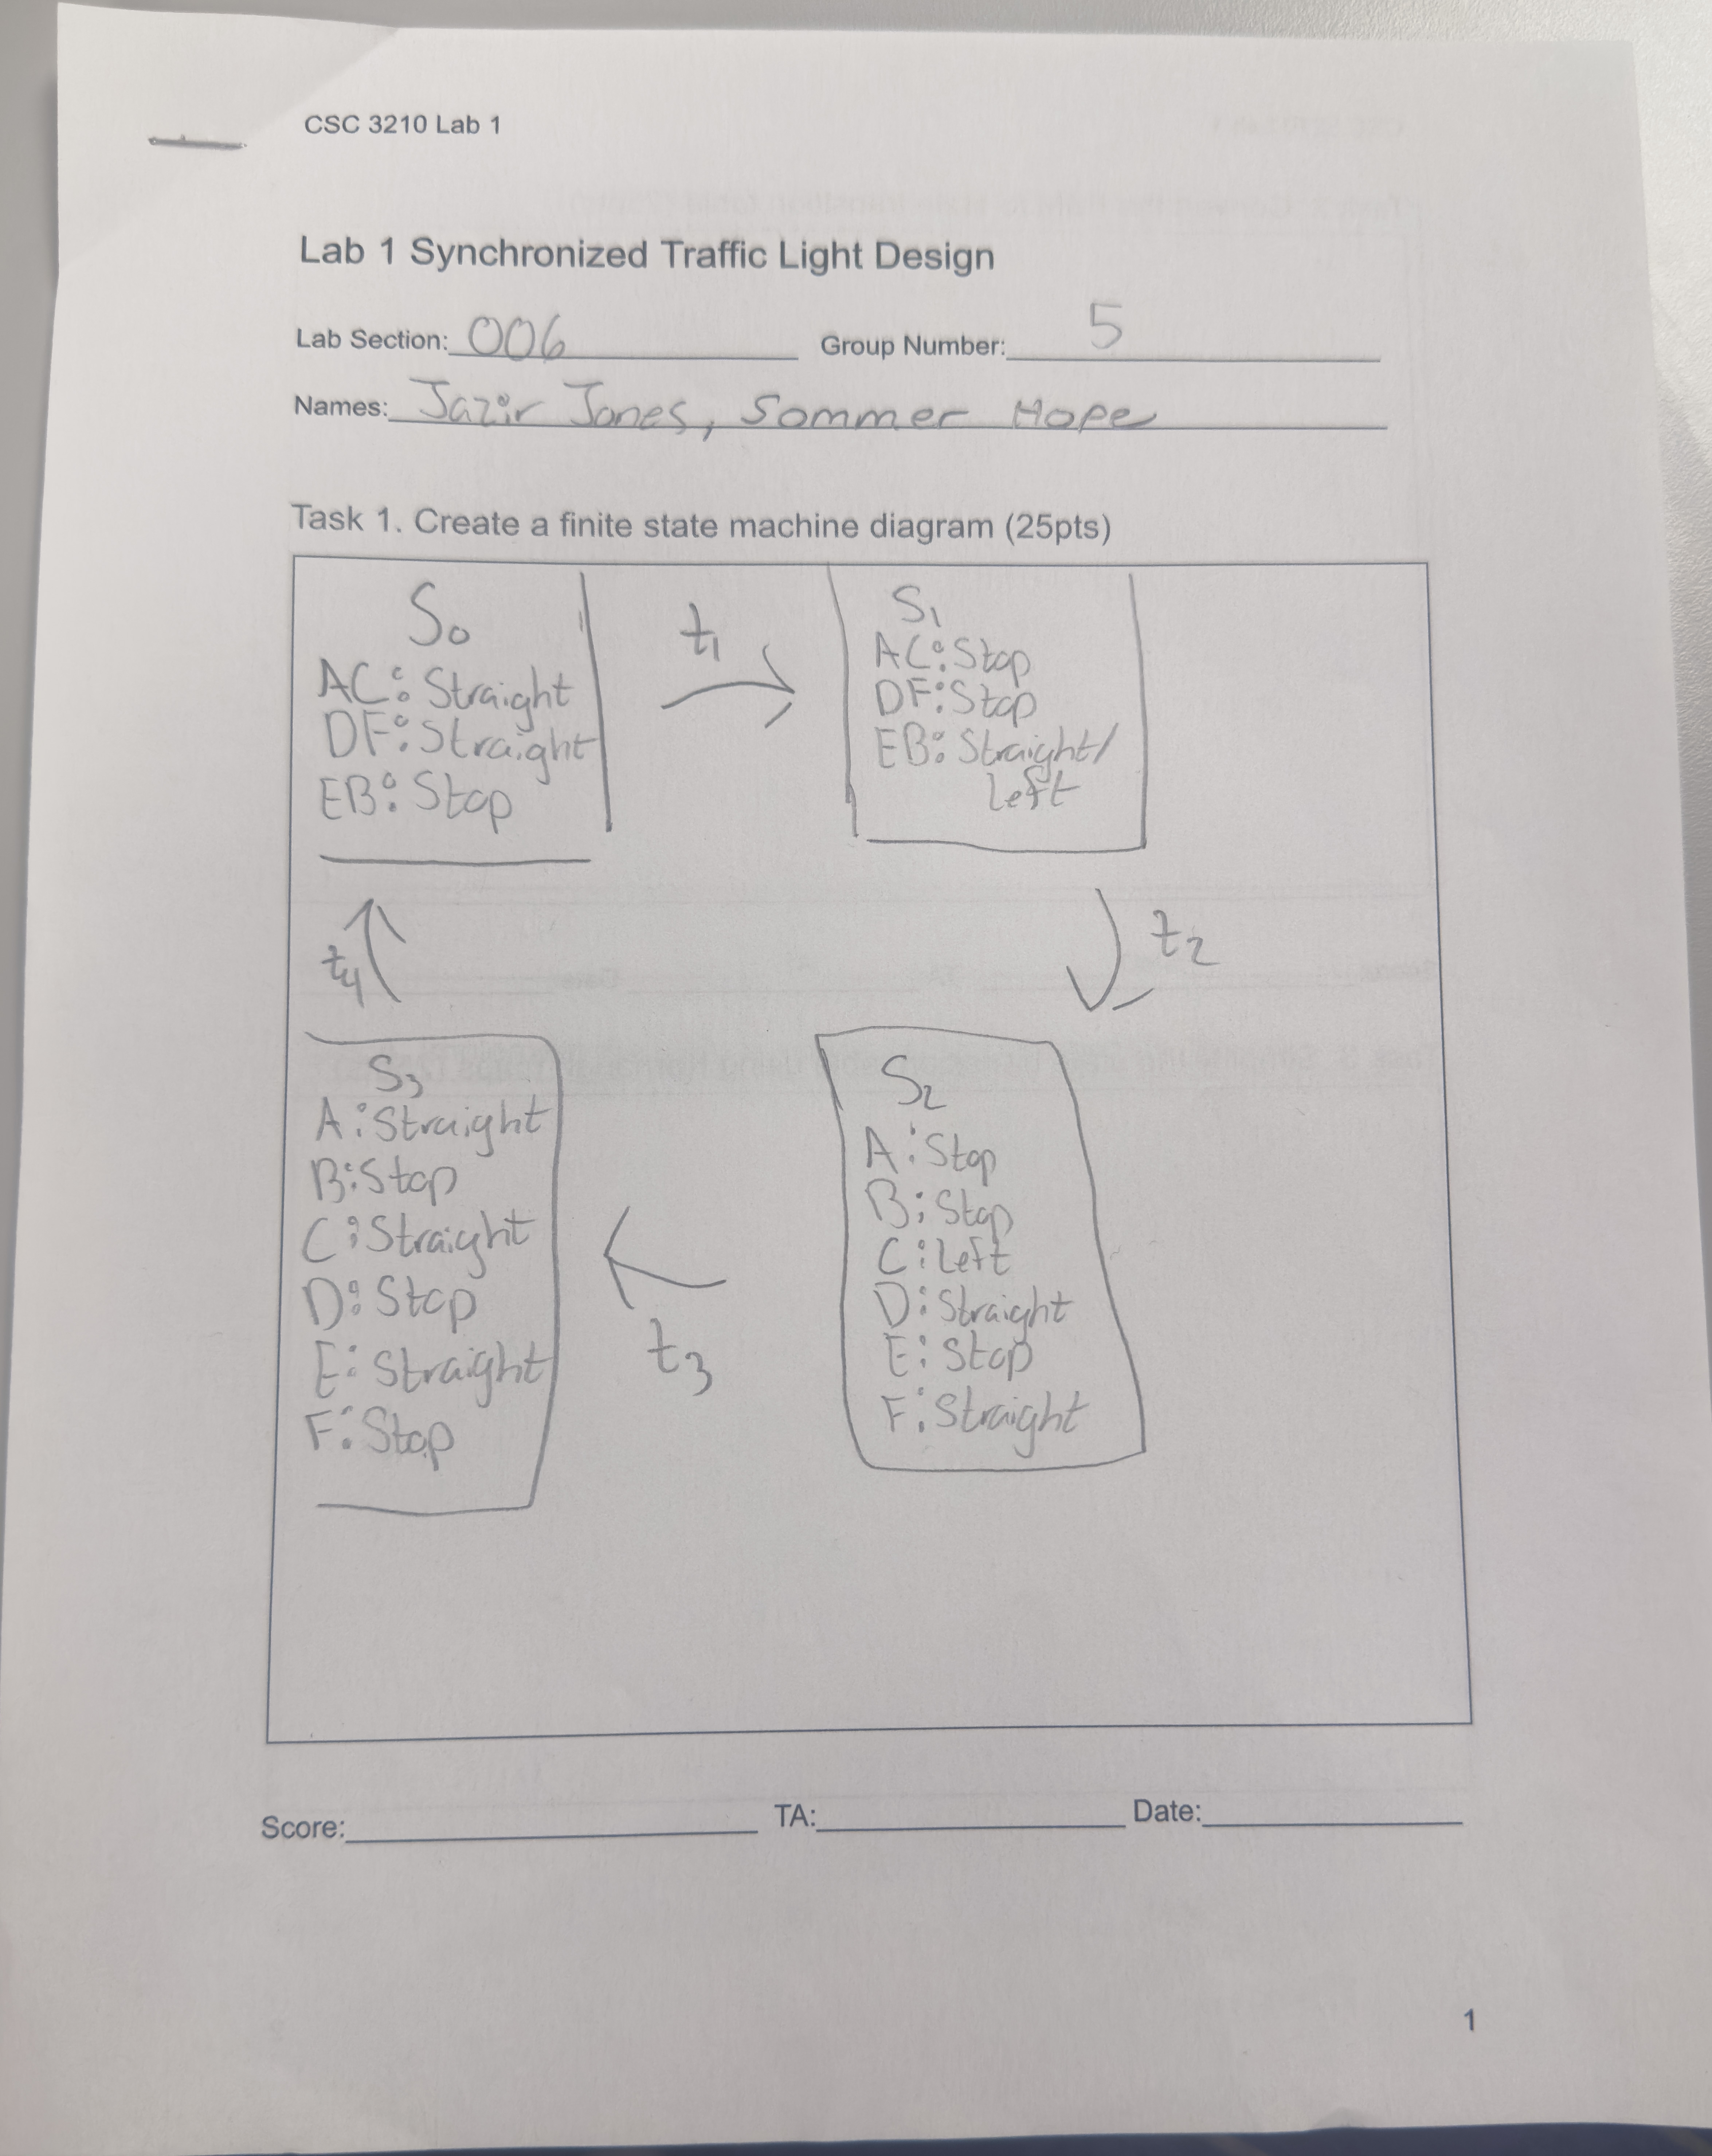 CSC 3210 Lab 1
Lab 1 Synchronized Traffic Light Design
Lab Section: 006 Group Number: 5
Names: Jazir Jones, Sommer Hope
Task 1. Create a finite state machine diagram (25pts)
S0
AC: Straight
DF: Straight
EB: Stop
t1
S1
AC: Stop
DF: Stop
EB: Straight/
Left
t4
t2
S3
A: Straight
B: Stop
C: Straight
D: Stop
E: Straight
F: Stop
t3
S2
A: Stop
B: Stop
C: Left
D: Straight
E: Stop
F: Straight
Score: TA: Date:
1